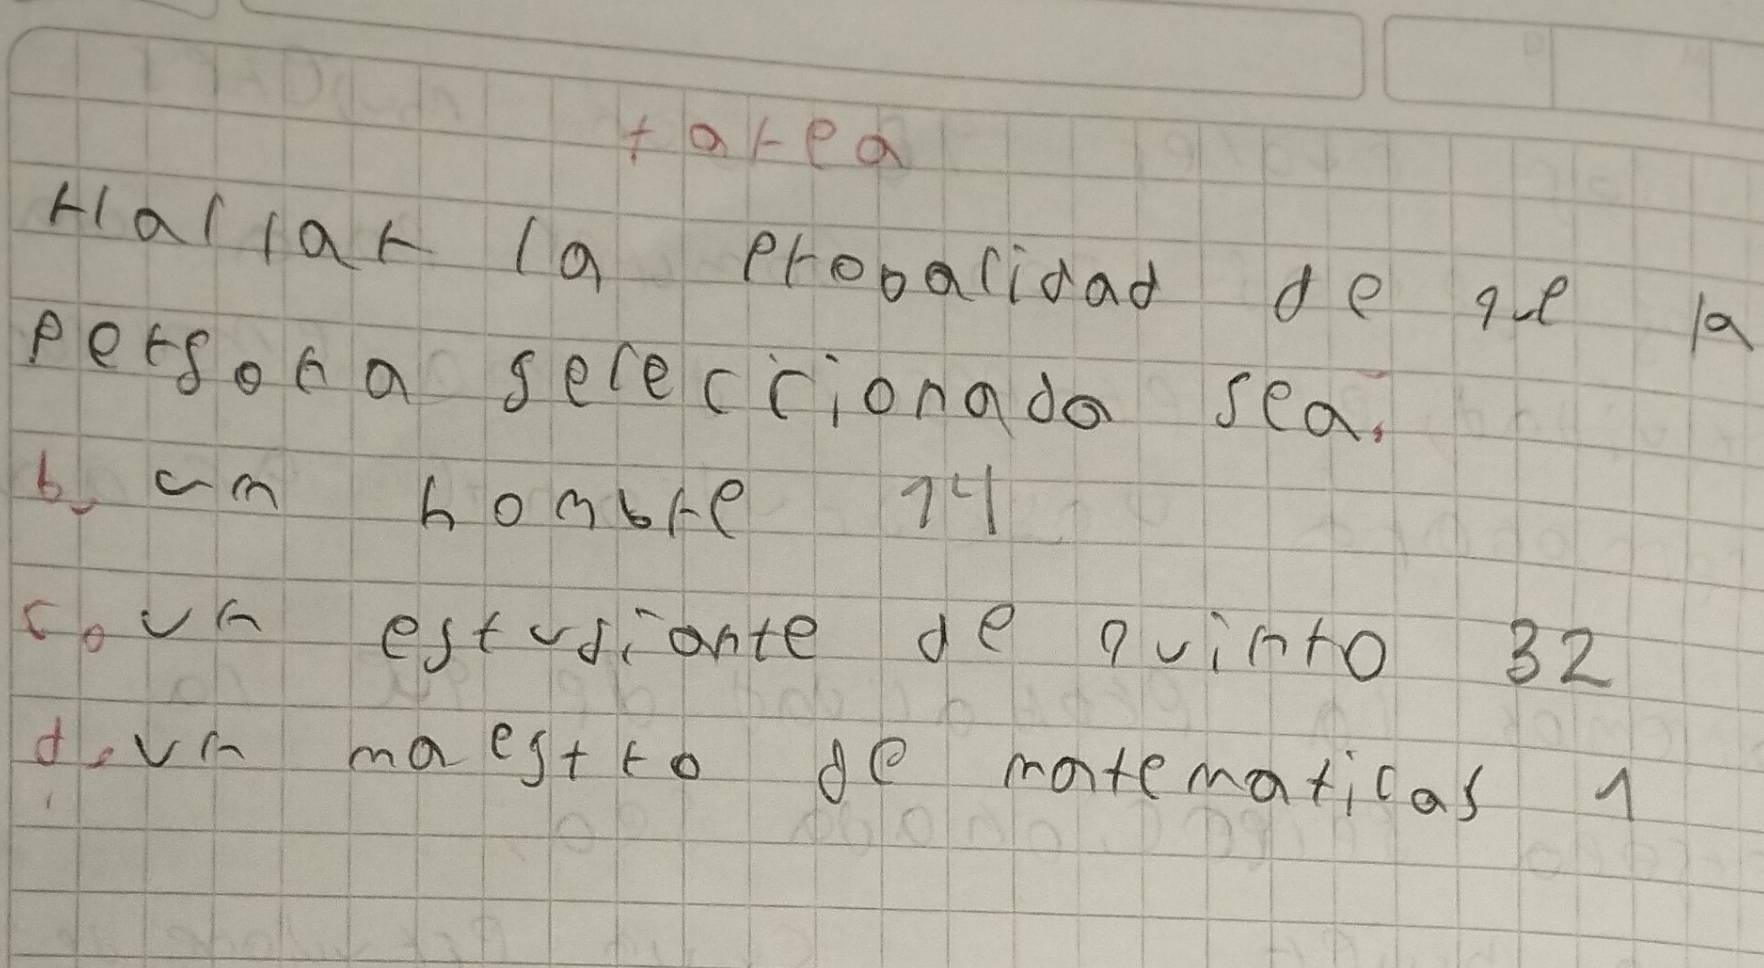 tarea
Hallar la probalidad de qe la
persona seleccionada sea.
b. un hombre 14
c. un estudiante de quinto 32
d. un maestro de matematicas 1